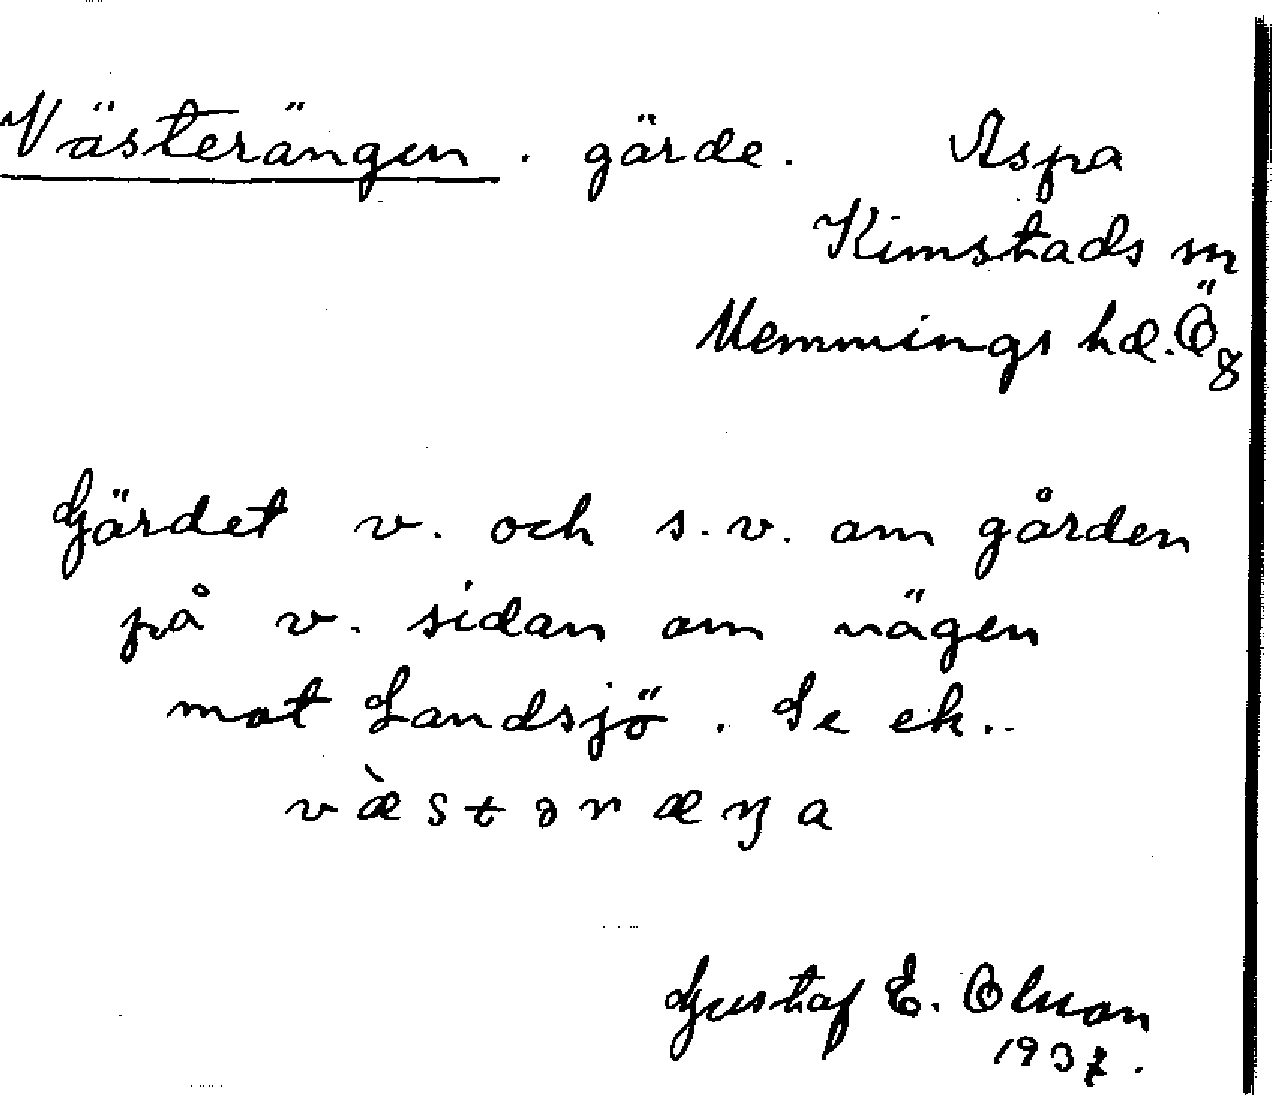 Västerängen. gärde. Aspa
Kimstads sn
Memmings hd. Ög
Gärdet v. och s.v. om gården
på v. sidan om vägen
mot Landsjö. Se ek..
væ̀stəræŋa
Gustaf E. Olsson
1937.